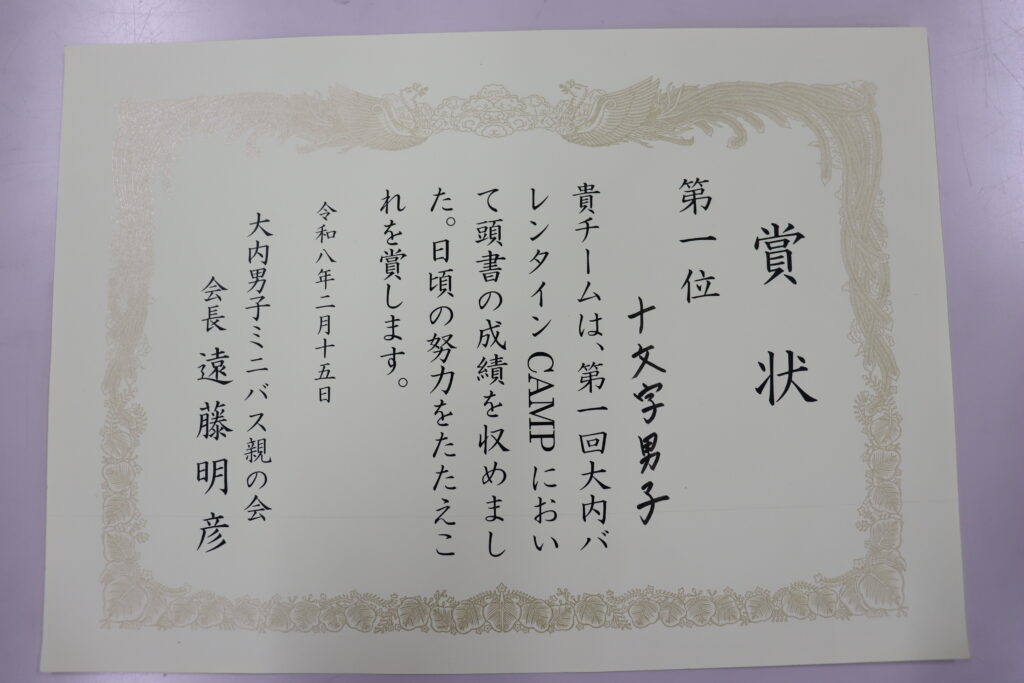 賞状
第一位
十文字男子
貴チームは、第一回大内バ
レンタインCAMPにおい
て頭書の成績を収めまし
た。日頃の努力をたたえこ
れを賞します。
令和八年二月十五日
大内男子ミニバス親の会
会長 遠藤明彦